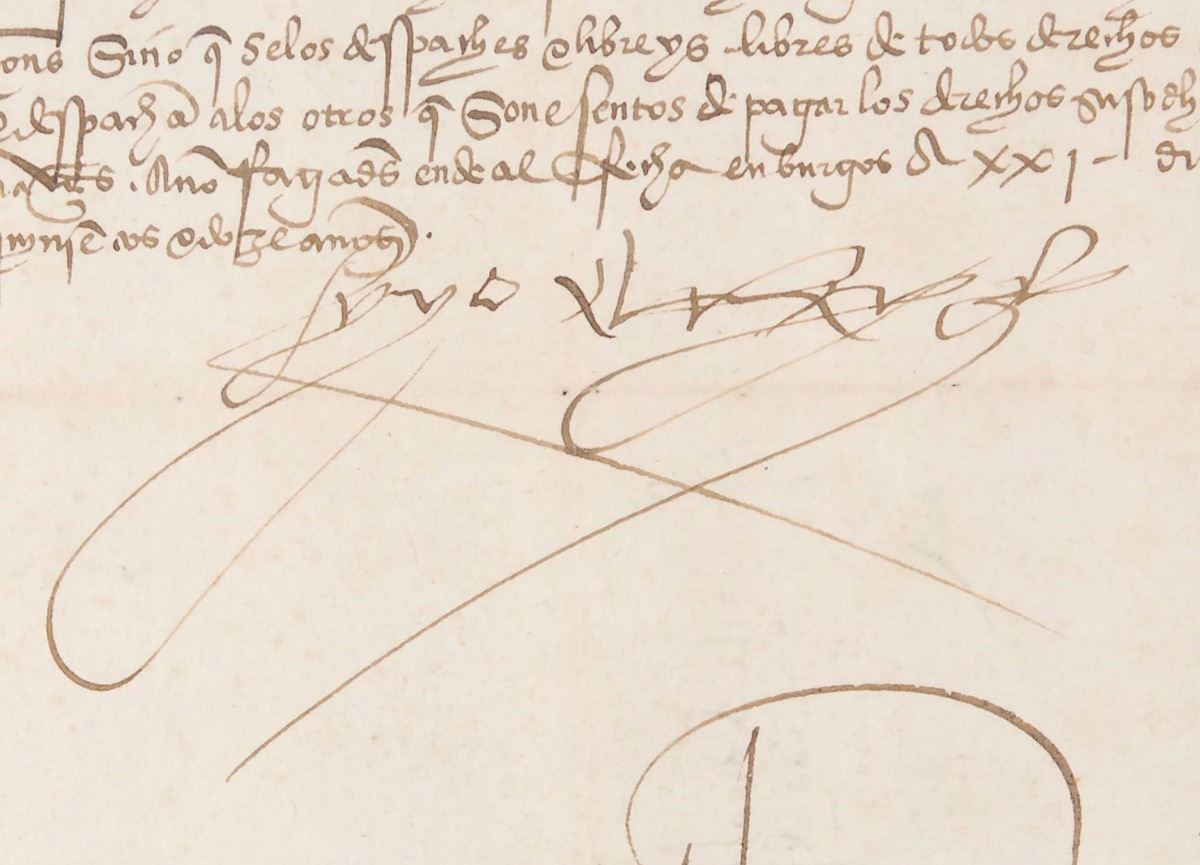 Sino q̃ gelos despaches & libreys libres de todos derechos
despachã a los otros q̃ son esentos de pagar los derechos susodh
no fagades ende al fecha en burgos a XXI di
quinientos & doze años
yo el rey